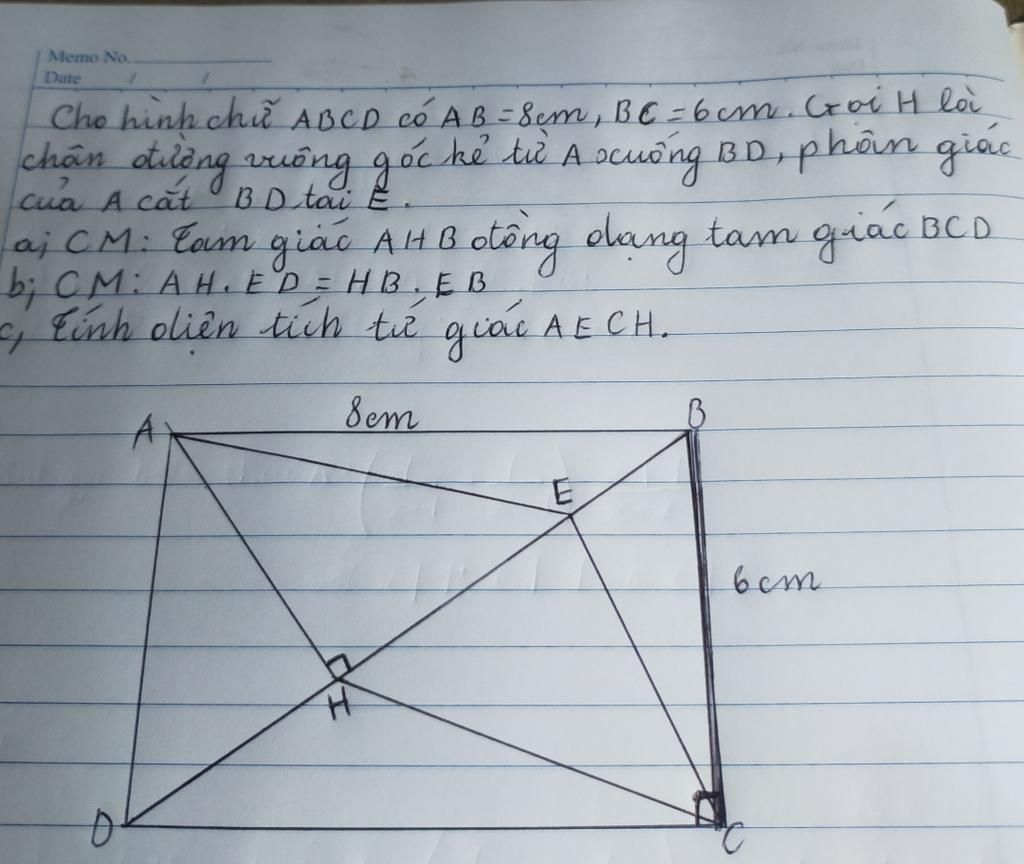 Memo No.
Date / /
Cho hình chữ ABCD có AB = 8cm, BC = 6cm. Gọi H là
chân đường vuông góc kẻ từ A xuống BD, phân giác
của A cắt BD tại E.
a; CM: Tam giác AHB đồng dạng tam giác BCD
b; CM: AH. ED = HB. EB
c, Tính diện tích tứ giác AECH.
A 8cm B
E
6cm
H
D C